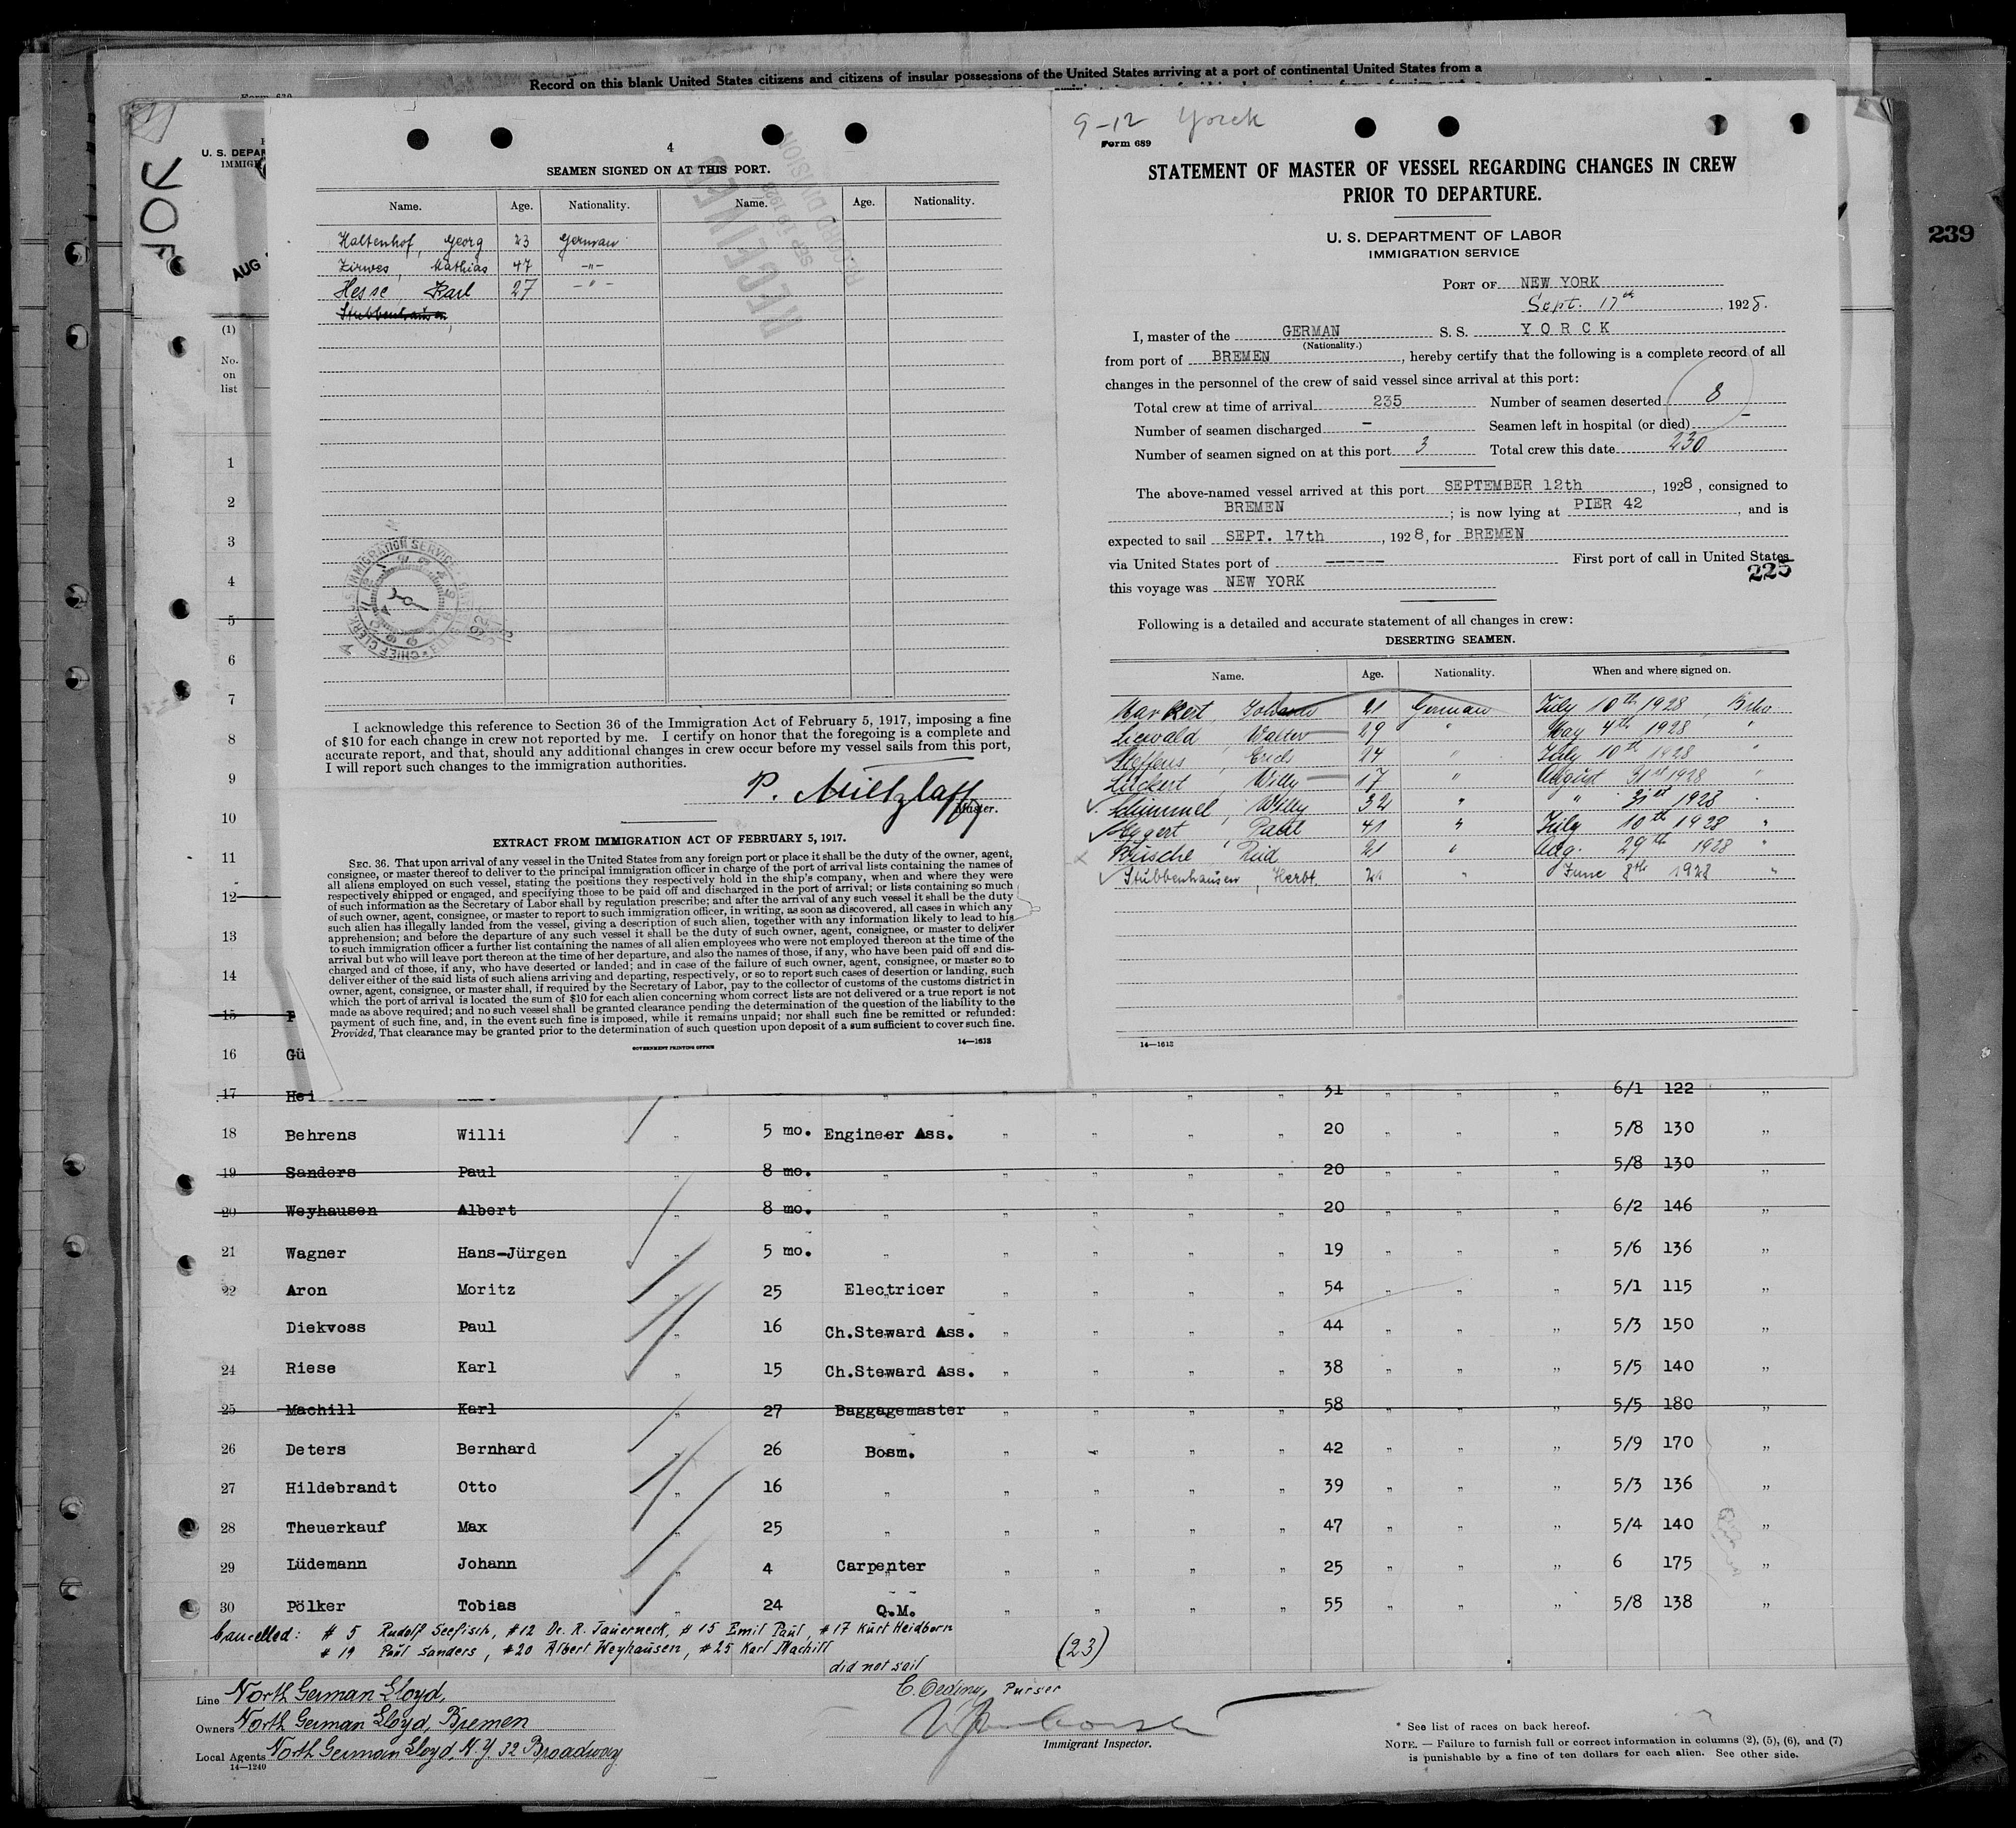 Record on this blank United States citizens and citizens of insular possessions of the United States arriving at a port of continental United States from a
Form 630
239
U. S. DEPAR
IMMIG
AUG
(1)
No.
on
list
4
SEAMEN SIGNED ON AT THIS PORT.
RECEIVED
Name. Age. Nationality. Name. Age. Nationality.
Haltenhof, Georg 23 German
Zirwes, Mathias 47 -"-
Hesse Karl 27 -"-
Stubbenhausen
I acknowledge this reference to Section 36 of the Immigration Act of February 5, 1917, imposing a fine
of $10 for each change in crew not reported by me. I certify on honor that the foregoing is a complete and
accurate report, and that, should any additional changes in crew occur before my vessel sails from this port,
I will report such changes to the immigration authorities.
P. Mietzlaff
Master.
EXTRACT FROM IMMIGRATION ACT OF FEBRUARY 5, 1917.
SEC. 36. That upon arrival of any vessel in the United States from any foreign port or place it shall be the duty of the owner, agent,
consignee, or master thereof to deliver to the principal immigration officer in charge of the port of arrival lists containing the names of
all aliens employed on such vessel, stating the positions they respectively hold in the ship's company, when and where they were
respectively shipped or engaged, and specifying those to be paid off and discharged in the port of arrival; or lists containing so much
of such information as the Secretary of Labor shall by regulation prescribe; and after the arrival of any such vessel it shall be the duty
of such owner, agent, consignee, or master to report to such immigration officer, in writing, as soon as discovered, all cases in which any
such alien has illegally landed from the vessel, giving a description of such alien, together with any information likely to lead to his
apprehension; and before the departure of any such vessel it shall be the duty of such owner, agent, consignee, or master to deliver
to such immigration officer a further list containing the names of all alien employees who were not employed thereon at the time of the
arrival but who will leave port thereon at the time of her departure, and also the names of those, if any, who have been paid off and dis-
charged and of those, if any, who have deserted or landed; and in case of the failure of such owner, agent, consignee, or master so to
deliver either of the said lists of such aliens arriving and departing, respectively, or so to report such cases of desertion or landing, such
owner, agent, consignee, or master shall, if required by the Secretary of Labor, pay to the collector of customs of the customs district in
which the port of arrival is located the sum of $10 for each alien concerning whom correct lists are not delivered or a true report is not
made as above required; and no such vessel shall be granted clearance pending the determination of the question of the liability to the
payment of such fine, and, in the event such fine is imposed, while it remains unpaid; nor shall such fine be remitted or refunded:
Provided, That clearance may be granted prior to the determination of such question upon deposit of a sum sufficient to cover such fine.
GOVERNMENT PRINTING OFFICE 14—1613
9-12 Yorck
Form 689
STATEMENT OF MASTER OF VESSEL REGARDING CHANGES IN CREW
PRIOR TO DEPARTURE.
U. S. DEPARTMENT OF LABOR
IMMIGRATION SERVICE
PORT OF NEW YORK
Sept. 17th, 1928.
I, master of the GERMAN S. S. YORCK
(Nationality.)
from port of BREMEN, hereby certify that the following is a complete record of all
changes in the personnel of the crew of said vessel since arrival at this port:
Total crew at time of arrival 235 Number of seamen deserted 8
Number of seamen discharged - Seamen left in hospital (or died) -
Number of seamen signed on at this port 3 Total crew this date 230
The above-named vessel arrived at this port SEPTEMBER 12th, 1928, consigned to
BREMEN; is now lying at PIER 42, and is
expected to sail SEPT. 17th, 1928, for BREMEN
via United States port of ------ First port of call in United States
this voyage was NEW YORK
225
Following is a detailed and accurate statement of all changes in crew:
DESERTING SEAMEN.
Name. Age. Nationality. When and where signed on.
Markert, Johann 21 German July 10th 1928, Brhv.
Liewald Walter 29 " May 4th 1928 "
Steffens, Erich 24 " July 10th 1928 "
Lückert, Willy 17 " August 31st 1928 "
Schimmel, Willy 32 " " 31st 1928 "
Eggert Paul 41 " July 10th 1928 "
Küsche, Rud 21 " Aug. 29th 1928 "
Stubbenhausen, Herbt. 21 " June 8th 1928 "
14—1613
1
2
3
4
5
6
7
8
9
10
11
12
13
14
15 P
16 Gü
17 Hei 31 6/1 122
18 Behrens Willi " 5 mo. Engineer Ass. " " " " 20 " " " 5/8 130 "
19 Sanders Paul 8 mo. " 20 5/8 130 "
20 Weyhausen Albert " 8 mo. " " " " " 20 " " " 6/2 146 "
21 Wagner Hans-Jürgen " 5 mo. " " " " " 19 " " " 5/6 136 "
22 Aron Moritz " 25 Electricer " " " " 54 " " " 5/1 115 "
Diekvoss Paul " 16 Ch.Steward Ass. " " " " 44 " " " 5/3 150 "
24 Riese Karl " 15 Ch.Steward Ass. " " " " 38 " " " 5/5 140 "
25 Machill Karl " 27 Baggagemaster " " " " 58 " " " 5/5 180 "
26 Deters Bernhard " 26 Bosm. " " " " 42 " " " 5/9 170 "
27 Hildebrandt Otto " 16 " " " " " 39 " " " 5/3 136 "
28 Theuerkauf Max " 25 " " " " " 47 " " " 5/4 140 "
29 Lüdemann Johann " 4 Carpenter " " " " 25 " " " 6 175 "
30 Pölker Tobias " 24 Q.M. " " " " 55 " " " 5/8 138 "
Cancelled: # 5 Rudolf Seefisch, #12 Dr. R. Tauerneck, # 15 Emil Paul, #17 Kurt Heidborn
# 19 Paul Sanders, #20 Albert Weyhausen, #25 Karl Machill
did not sail
(23)
Line North German Lloyd,
Owners North German Lloyd, Bremen
Local Agents North German Lloyd, N.Y. 32 Broadway
14—1240
Purser
Immigrant Inspector.
* See list of races on back hereof.
NOTE. — Failure to furnish full or correct information in columns (2), (5), (6), and (7)
is punishable by a fine of ten dollars for each alien. See other side.